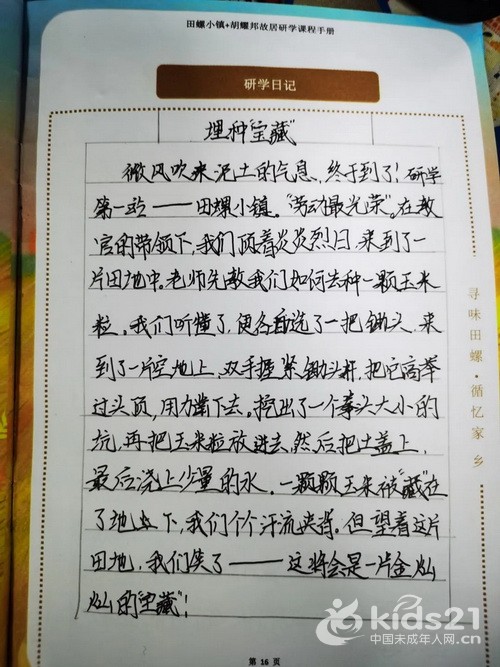 田螺小镇+胡耀邦故居研学课程手册
研学日记
埋种“宝藏”
微风吹来泥土的气息，终于到了！研学
第一站——田螺小镇。“劳动最光荣”。在教
官的带领下，我们顶着炎炎烈日，来到了一
片田地中。老师先教我们如何去种一颗玉米
粒。我们听懂了，便各自选了一把锄头，来
到了一片空地上，双手握紧锄头杆，把它高举
过头顶，用力凿下去。挖出了一个拳头大小的
坑，再把玉米粒放进去，然后把土盖上，
最后浇上少量的水。一颗颗玉米被“藏”在
了地底下，我们个个汗流浃背。但望着这片
田地，我们笑了——这将会是一片金灿
灿的“宝藏”！
寻味田螺·循忆家乡
第 16 页
kids21
中国未成年人网.cn